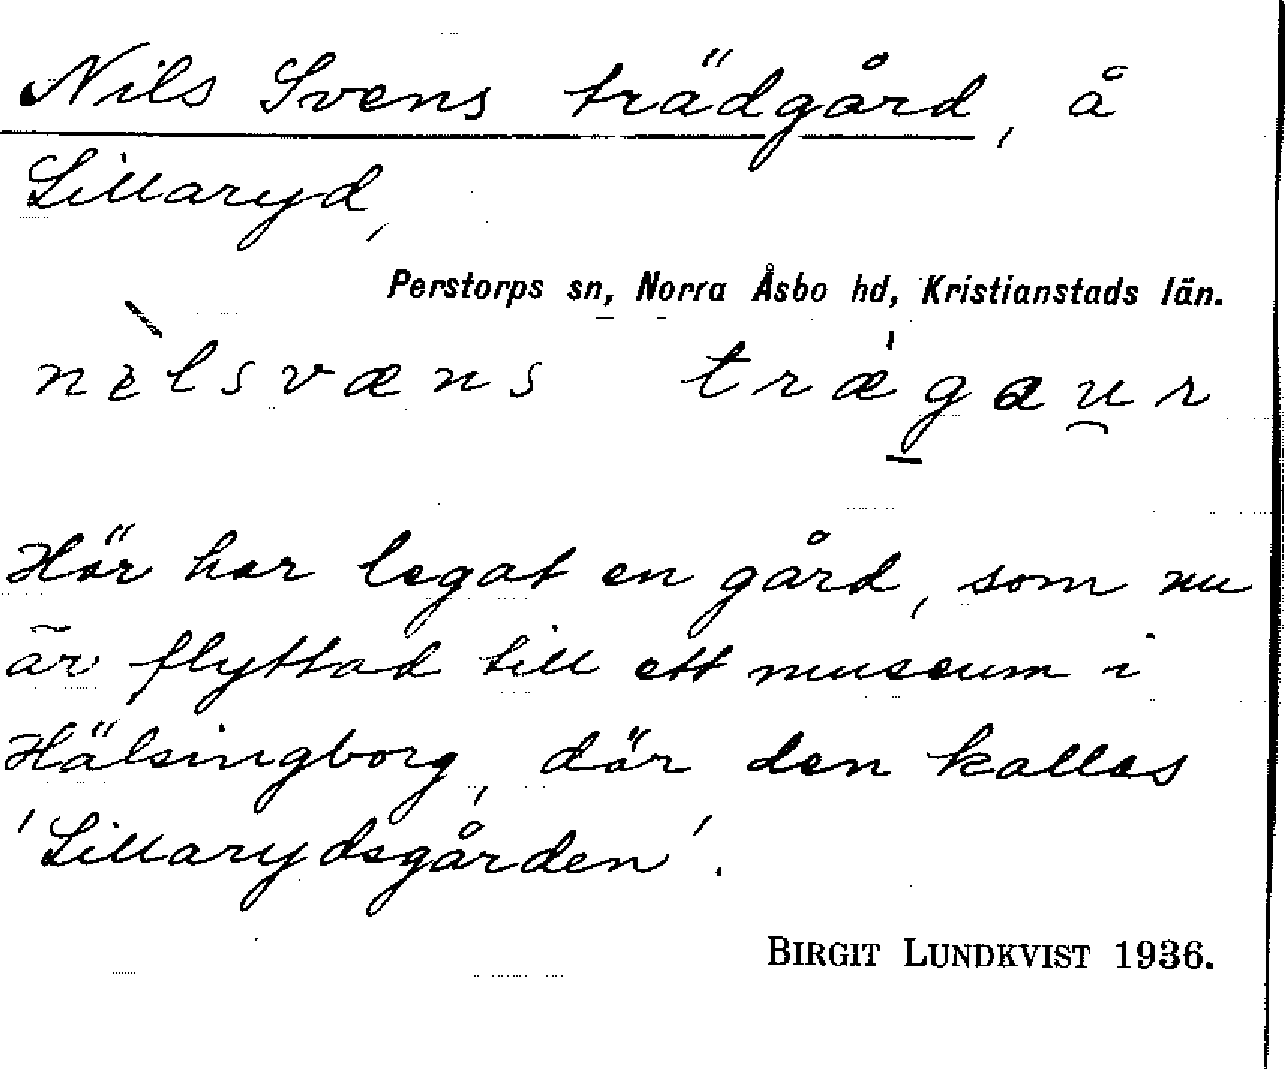 Nils Svens trädgård, å
Lillaryd,
Perstorps sn, Norra Åsbo hd, Kristianstads län.
nèlsvæns trǽgau̯r
Här har legat en gård, som nu
är flyttad till ett museum i
Hälsingborg, där den kallas
'Lillarydsgården'.
BIRGIT LUNDKVIST 1936.